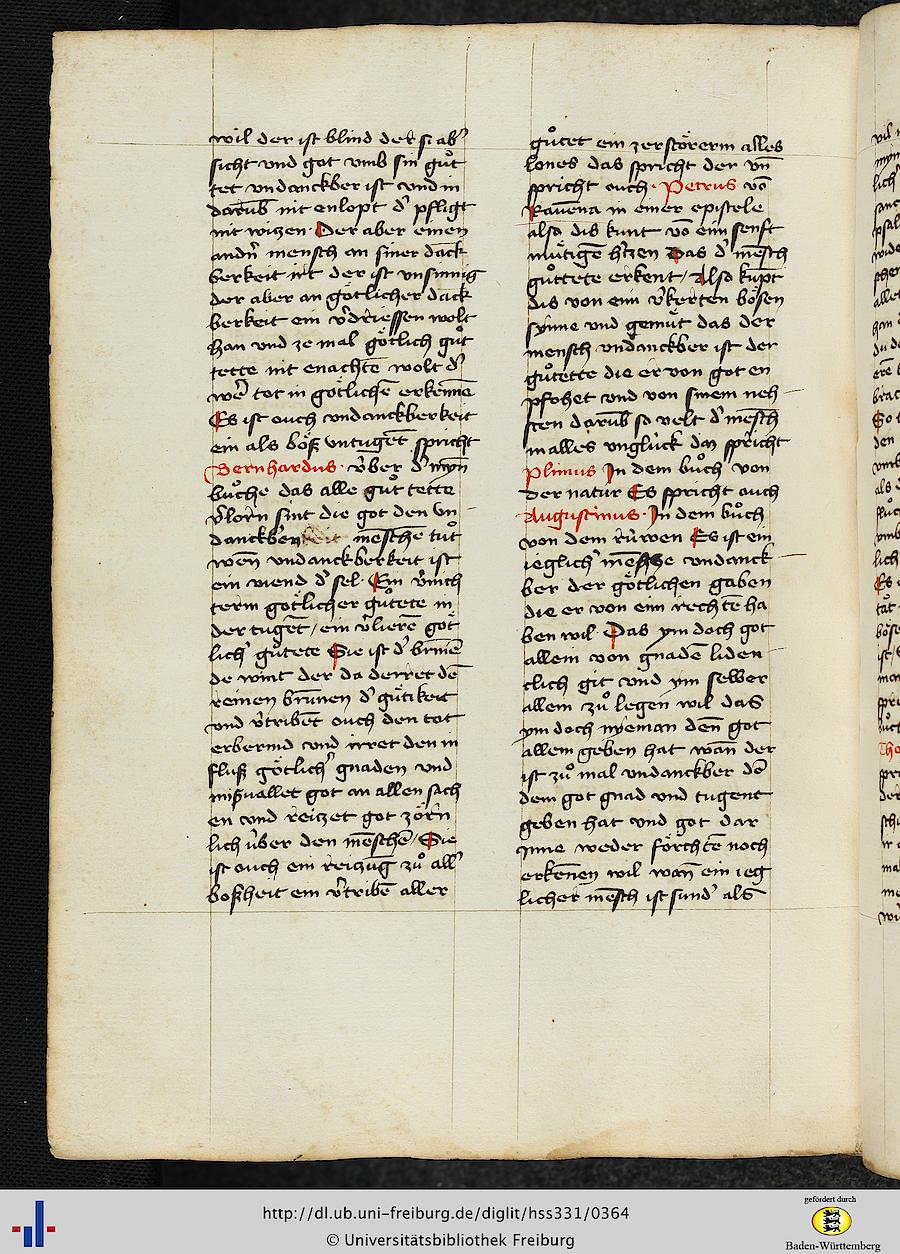 wil der ist blind der s ab
sicht vnd got vmb sin guͦt
tet vndanckber ist vnd in
darūb nit enlopt d' pfligt
nit wizen. Der aber einen
andn̄ mensch an siner dack
berkeit irt der ist vnsinnig
der aber an göttlicher dack
berkeit ein v'driessen wolt
han vnd ze mal götlich guͦt
tette nit enachtē wolt d'
wē tot in götlichē erkennē
Es ist ouch vndanckberkeit
ein als böß vntugēt spricht
Bernhardus. v̈ber d'
buͦche das alle guͦt tette
v'lorn sint die got den vn
danckberen meschē tuͦt
wēn vndanckberkeit ist
ein viend d' sel. Ein
term götlicher guͦtete in
der tugēt / ein v'lierē göt
lich' guͦtete Sie ist d' brinē
de wint der da derret dē
reinen brūnen d' guͤtikeit
vnd v'tribēt ouch den tot
erbermd vnd irret den in
fluß götlich' gnaden vnd
mißuallet got an allen sach
en vnd reitzet got zörn
lich v̈ber den mēschē / Sie
ist ouch ein reizūg zuͦ all'
boßheit ein v'tribē aller
guͦtet ein zerstörerin alles
lones das spricht der vn̄
spricht ouch. Petrus vō
Rauēna in einer epistele
also dis kunt vō eim senft
muͤtigē h'tzen das d' mēsch
guͦttete erkent / Also kūpt
dis von eim v'kerten bösen
synne vnd gemuͤt das der
mensch vndanckber ist der
guͦtette die er von got en
pfohet vnd von sinem neh
sten darūb so velt d' mēsch
in alles vnglück das spricht
Plinius In dem buͦch von
der natur Es spricht ouch
Augustinus. In dem buͦch
von dem rüwen Es ist ein
ieglich' mēsche vndanck
ber der götlichen gaben
die er von eim rechtē ha
ben wil. Das ym doch got
allein von gnadē liden
clich git vnd ym selber
allein zuͦ legen wil das
ym doch nyeman dēn got
allein geben hat wān der
ist zuͦ mal vndanckber dē
dem got gnad vnd tugent
geben hat vnd got dar
Inne weder förchtē noch
erkēnen wil wān ein ieg
licher mēsch ist sund' als
http://dl.ub.uni-freiburg.de/diglit/hss331/0364
© Universitätsbibliothek Freiburg
gefördert durch
Baden-Württemberg